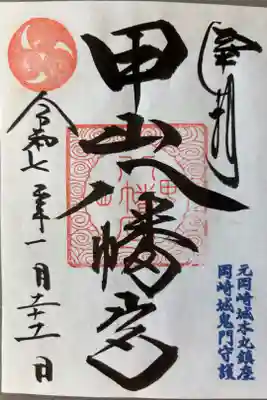 奉拝
甲山八幡宮
令和七年一月二十二日
元岡崎城本丸鎮座
岡崎城鬼門守護